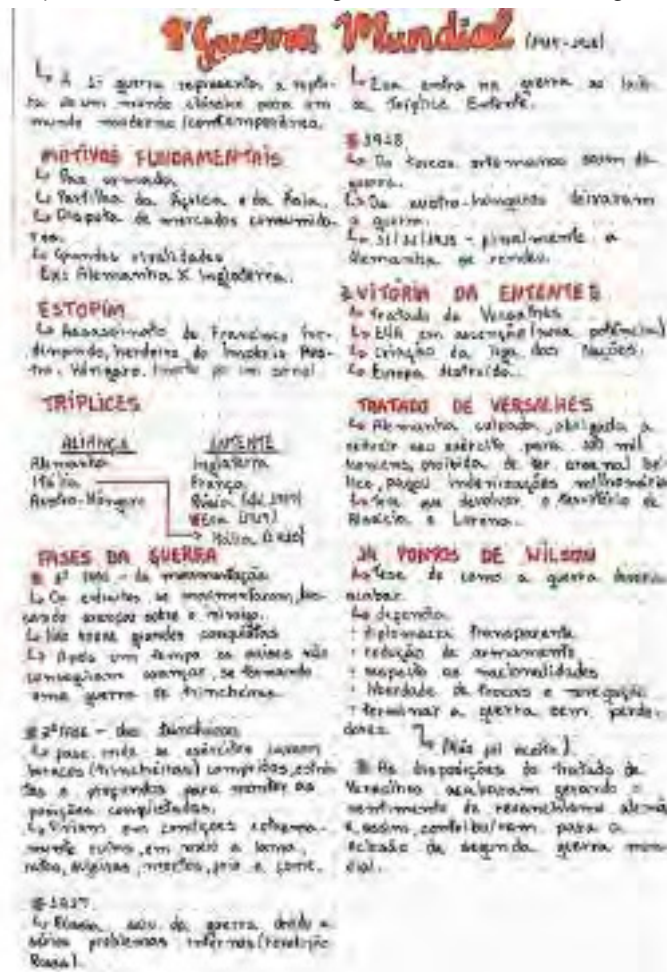 1ª Guerra Mundial (1914-1918)
↳ A 1ª guerra representa a ruptu-
ra de um mundo clássico para um
mundo moderno/contemporâneo.
MOTIVOS FUNDAMENTAIS
↳ Paz armada
↳ Partilha da África e da Ásia.
↳ Disputa de mercados consumido-
res.
↳ Grandes rivalidades
Ex: Alemanha X Inglaterra.
ESTOPIM
↳ Assassinato de Francisco Fer-
dinando, herdeiro do Império Aus-
tro-Húngaro. Morto por um
TRÍPLICES
ALIANÇA
Alemanha
Itália
Austro-Húngaro
ENTENTE
Inglaterra
França
Rússia (até 1917)
EUA (1917)
Itália (1915)
FASES DA GUERRA
1ª fase - da movimentação
↳ Os exércitos se movimentaram, bus-
cando avanços sobre o inimigo.
↳ Não houve grandes conquistas
↳ Após um tempo os países não
conseguiram avançar, se tornando
uma guerra de trincheiras.
2ª fase - das trincheiras
↳ fase onde os exércitos cavam
buracos (trincheiras) compridos, estrei-
tos e profundos para manter as
posições conquistadas.
↳ Viviam em condições extrema-
mente ruins, em meio a lama,
ratos, sujeiras, mortos, frio e fome.
1917
↳ Rússia saiu da guerra devido a
sérios problemas internos (revolução
Russa).
↳ Eua entra na guerra ao lado
da Tríplice Entente.
1918
↳ Os turcos otomanos saem da
guerra.
↳ Os austro-húngaros deixaram
a guerra.
↳ 11/11/1918 - finalmente a
Alemanha se rendeu.
VITÓRIA DA ENTENTE
↳ Tratado de Versalhes
↳ EUA em ascenção (nova potência)
↳ Criação da liga das Nações.
↳ Europa destruída.
TRATADO DE VERSALHES
↳ Alemanha culpada, obrigada a
reduzir seu exército para 100 mil
homens, proibida de ter arsenal bé-
lico, pagou indenizações milionárias
↳ teve que devolver o território de
Alsácia e Lorena.
14 PONTOS DE WILSON
↳ Tese de como a guerra deveria
acabar.
↳ defendia
diplomacia transparente
redução de armamento
respeito as nacionalidades
liberdade de trocas e navegação
terminar a guerra sem perde-
dores.
↳ (Não foi aceito).
As disposições do tratado de
Versalhes acabaram gerando o
sentimento de revanchismo alemão
e, assim, contribuíram para a
eclosão da segunda guerra mun-
dial.